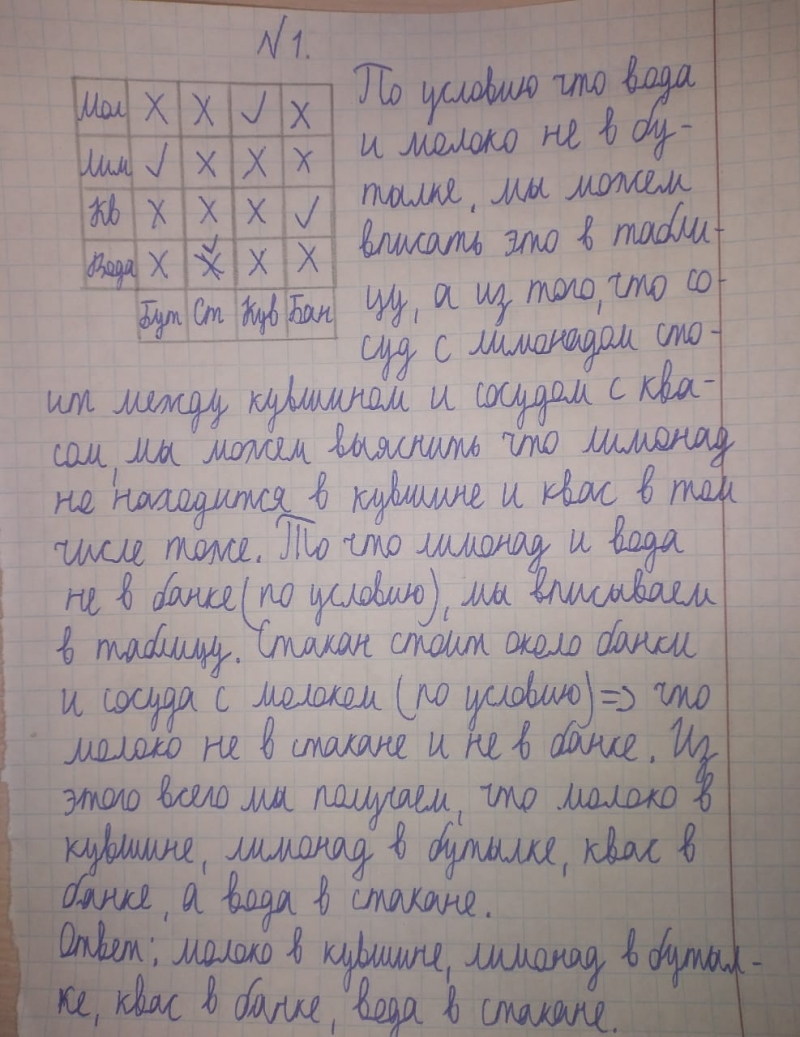 №1.
Мол X X ✓ X
Лим ✓ X X X
Кв X X X ✓
Вода X ✓ X X
Бут Ст Кув Бан
По условию что вода
и молоко не в бу-
тылке, мы можем
вписать это в табли-
цу, а из того, что со-
суд с лимонадом сто-
ит между кувшином и сосудом с ква-
сом, мы можем выяснить что лимонад
не находится в кувшине и квас в том
числе тоже. То что лимонад и вода
не в банке (по условию), мы вписываем
в таблицу. Стакан стоит около банки
и сосуда с молоком (по условию) => что
молоко не в стакане и не в банке. Из
этого всего мы получаем, что молоко в
кувшине, лимонад в бутылке, квас в
банке, а вода в стакане.
Ответ: молоко в кувшине, лимонад в бутыл-
ке, квас в банке, вода в стакане.